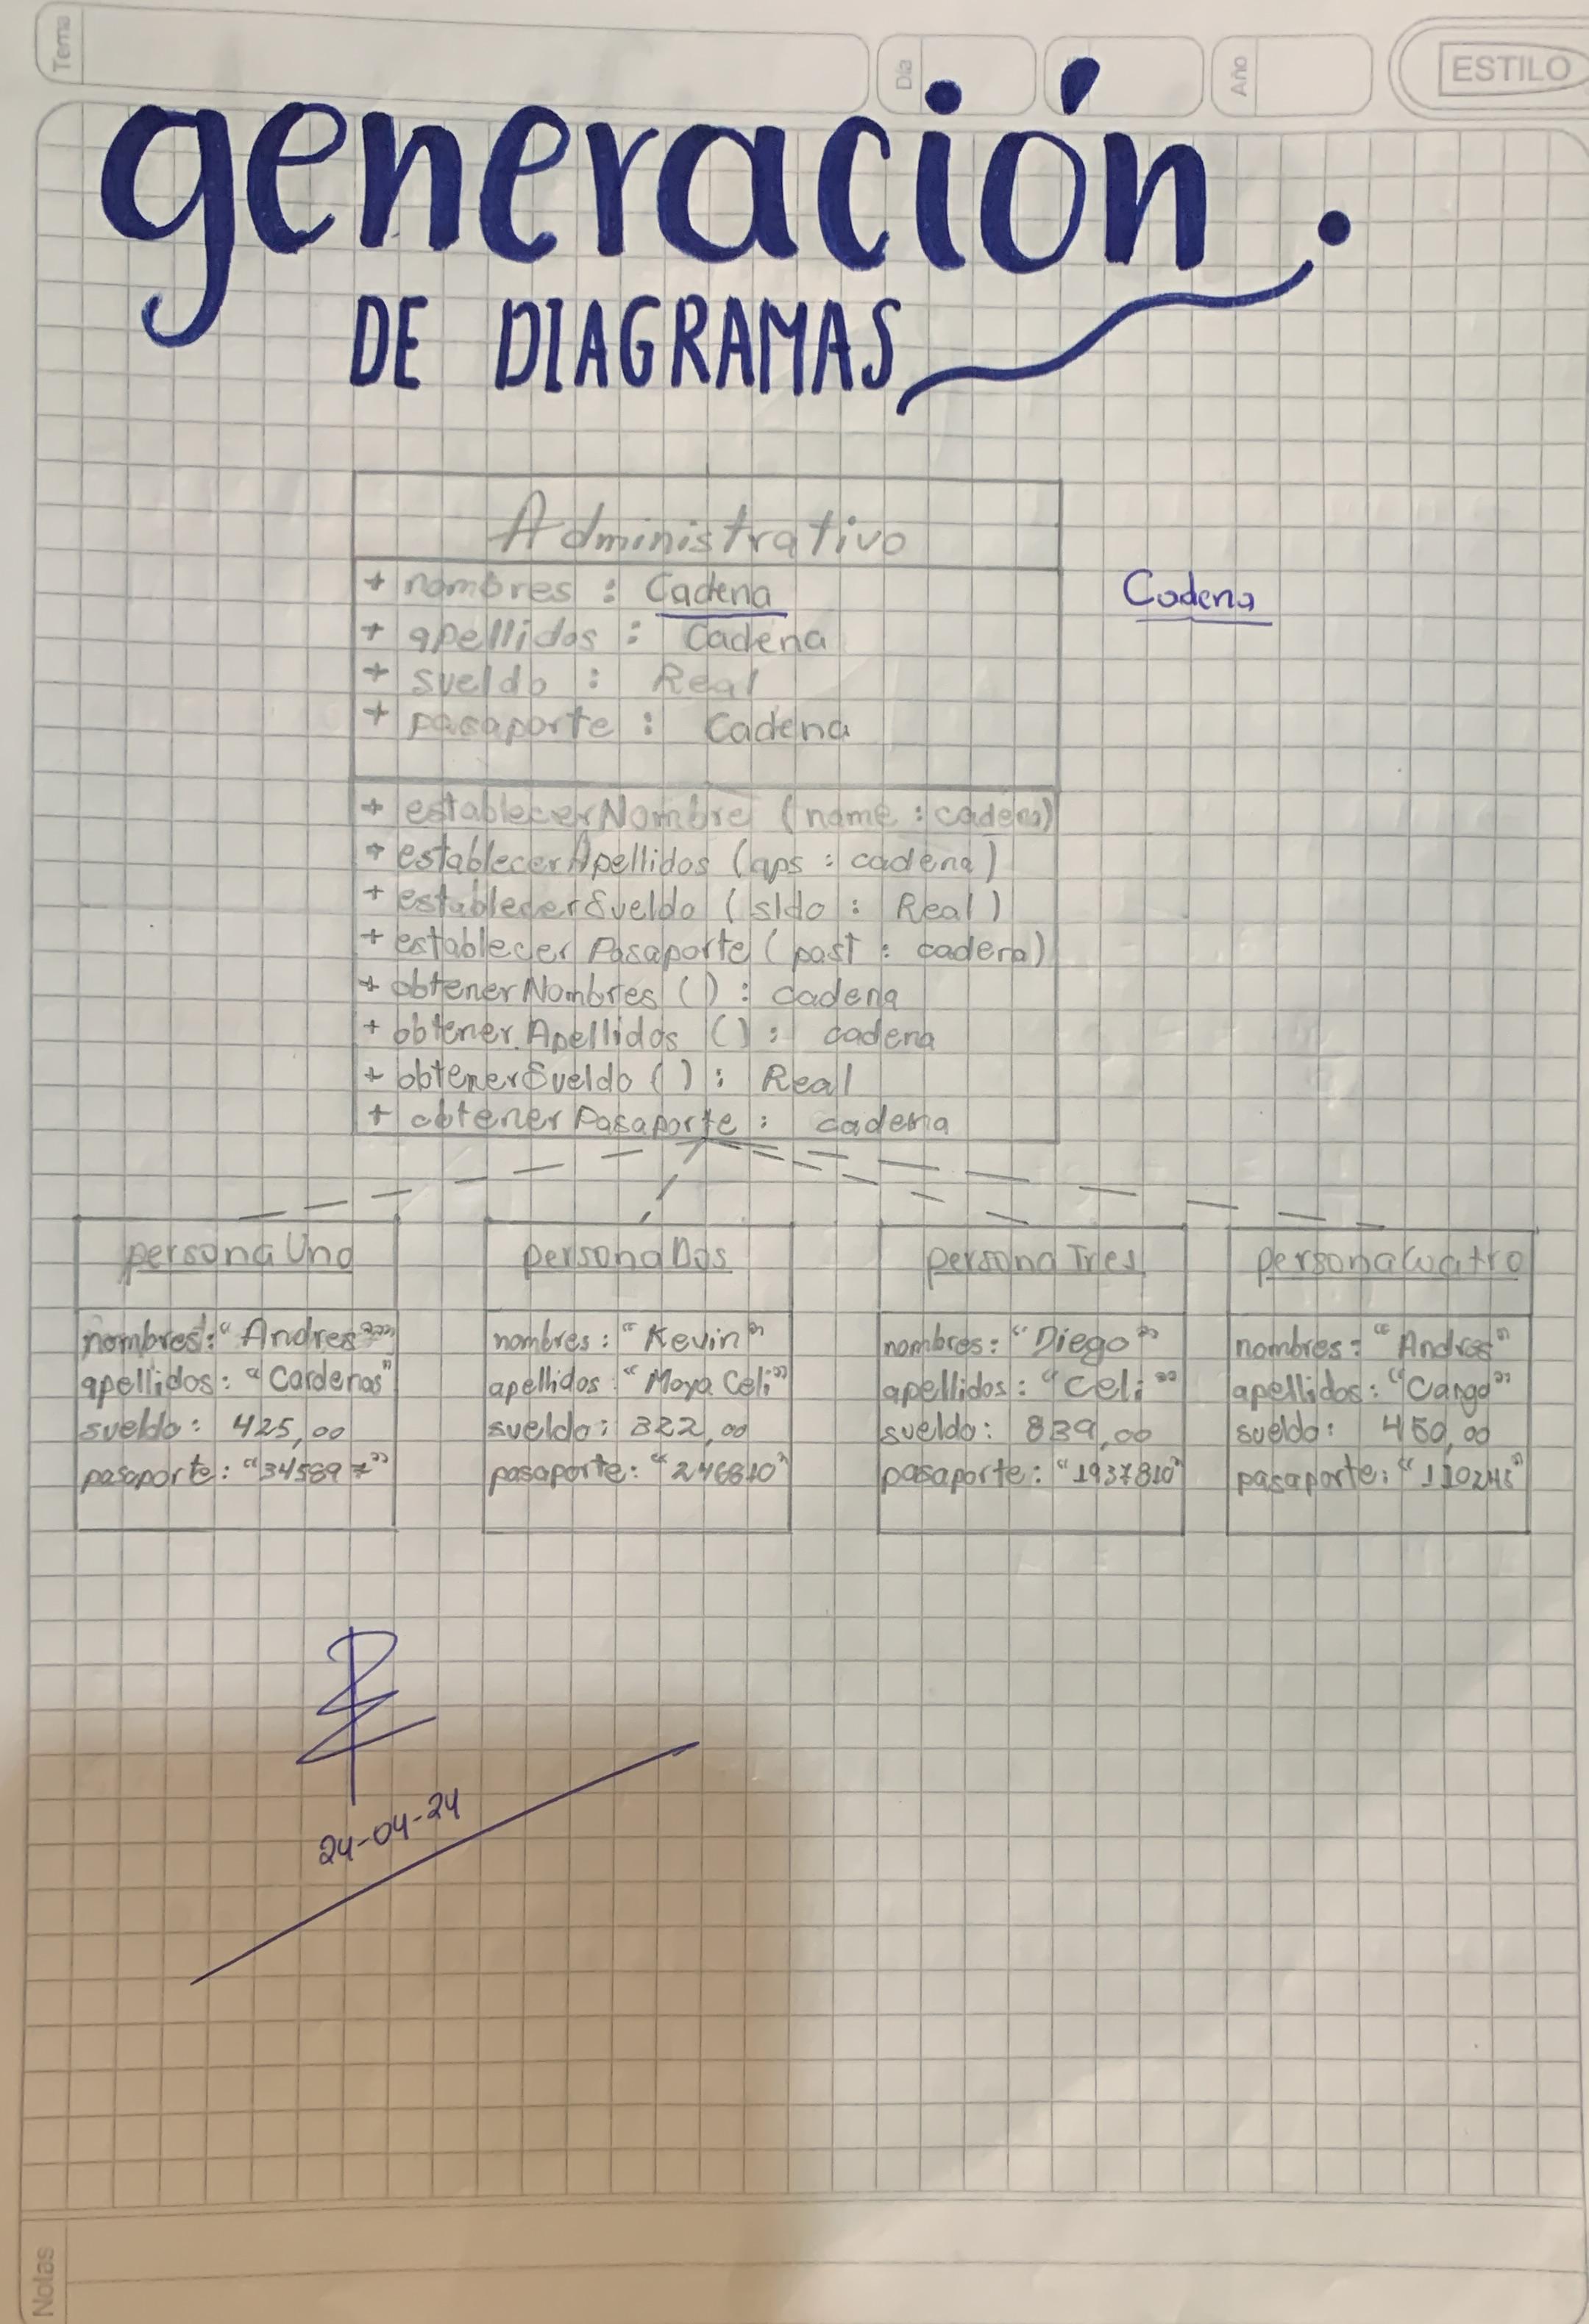 Tema
Día
Año
ESTILO
generación.
DE DIAGRAMAS
Administrativo
+ nombres : Cadena
Cadena
+ apellidos : Cadena
+ sueldo : Real
+ pasaporte : Cadena
+ establecerNombre (name : cadena)
+ establecerApellidos (aps : cadena)
+ establecerSueldo (sldo : Real)
+ establecer Pasaporte (past : cadena)
+ obtenerNombres () : cadena
+ obtener Apellidos () : cadena
+ obtenerSueldo () : Real
+ obtener Pasaporte : cadena
personaUno
nombres: "Andres"
apellidos: "Cardenas"
sueldo: 425,00
pasaporte: "345897"
personaDos
nombres: "Kevin"
apellidos: "Moya Celi"
sueldo: 322,00
pasaporte: "246810"
personaTres
nombres: "Diego"
apellidos: "Celi"
sueldo: 839,00
pasaporte: "1937810"
personaCuatro
nombres: "Andres"
apellidos:
sueldo: 450,00
pasaporte:
24-04-24
Notas